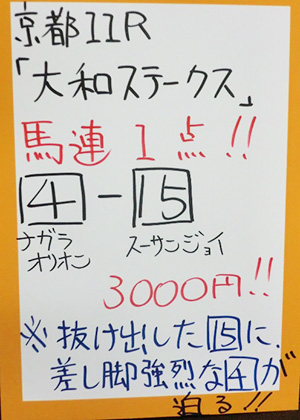 京都11R
「大和ステークス」
馬連1点!!
4-15
ナガラオリオン スーサンジョイ
3000円!!
※抜け出した15に、
差し脚強烈な4が
迫る!!